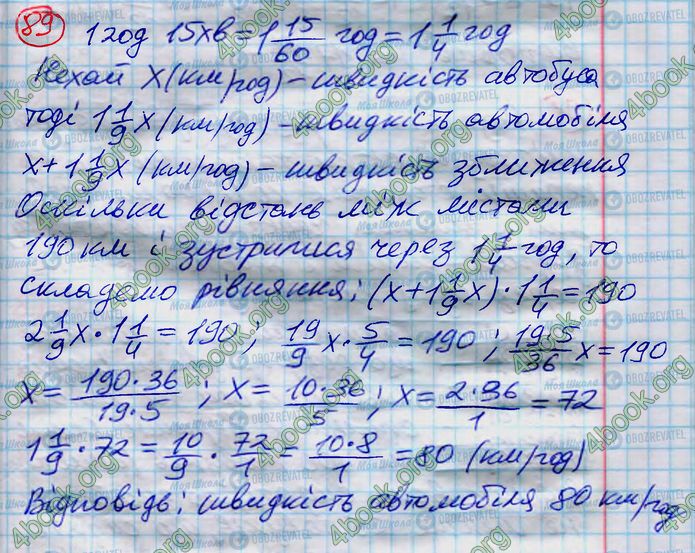 89
1 год 15хв = 1 15/60 год = 1 1/4 год
Нехай х (км/год) – швидкість автобуса
тоді 1 1/9 х (км/год) – швидкість автомобіля
х + 1 1/9 х (км/год) – швидкість зближення
Оскільки відстань між містами
190 км і зустрілися через 1 1/4 год, то
складемо рівняння: (х + 1 1/9 х) · 1 1/4 = 190
2 1/9 х · 1 1/4 = 190; 19/9 х · 5/4 = 190; 19·5/36 х = 190
х = 190·36/19·5; х = 10·36/5; х = 2·36/1 = 72
1 1/9 · 72 = 10/9 · 72/1 = 10·8/1 = 80 (км/год)
Відповідь: швидкість автомобіля 80 км/год